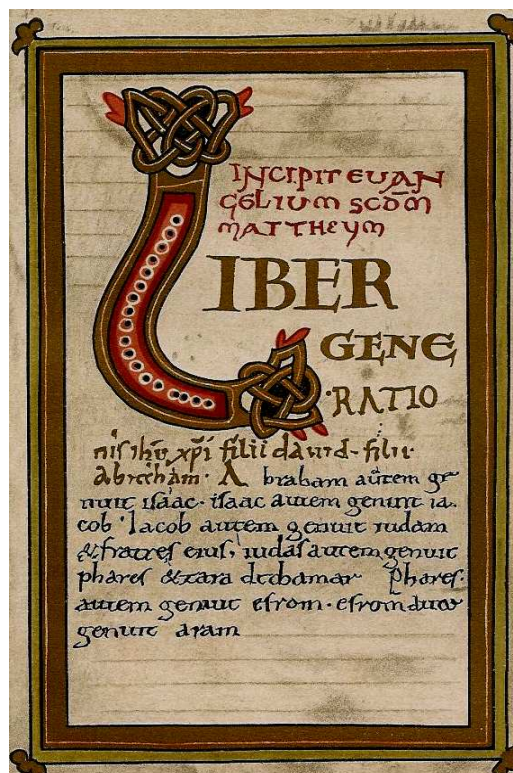 INCIPIT EUAN
GELIUM SCDM
MATTHEUM
LIBER
GENE
·RATIO
nis ihu xpi filii david- filii
abraham· Abraham autem ge
nuit isaac· isaac autem genuit ia
cob· Iacob autem genuit iudam
& fratres eius, iudas autem genuit
phares & zara de thamar Phares·
autem genuit esrom· esrom autem
genuit aram